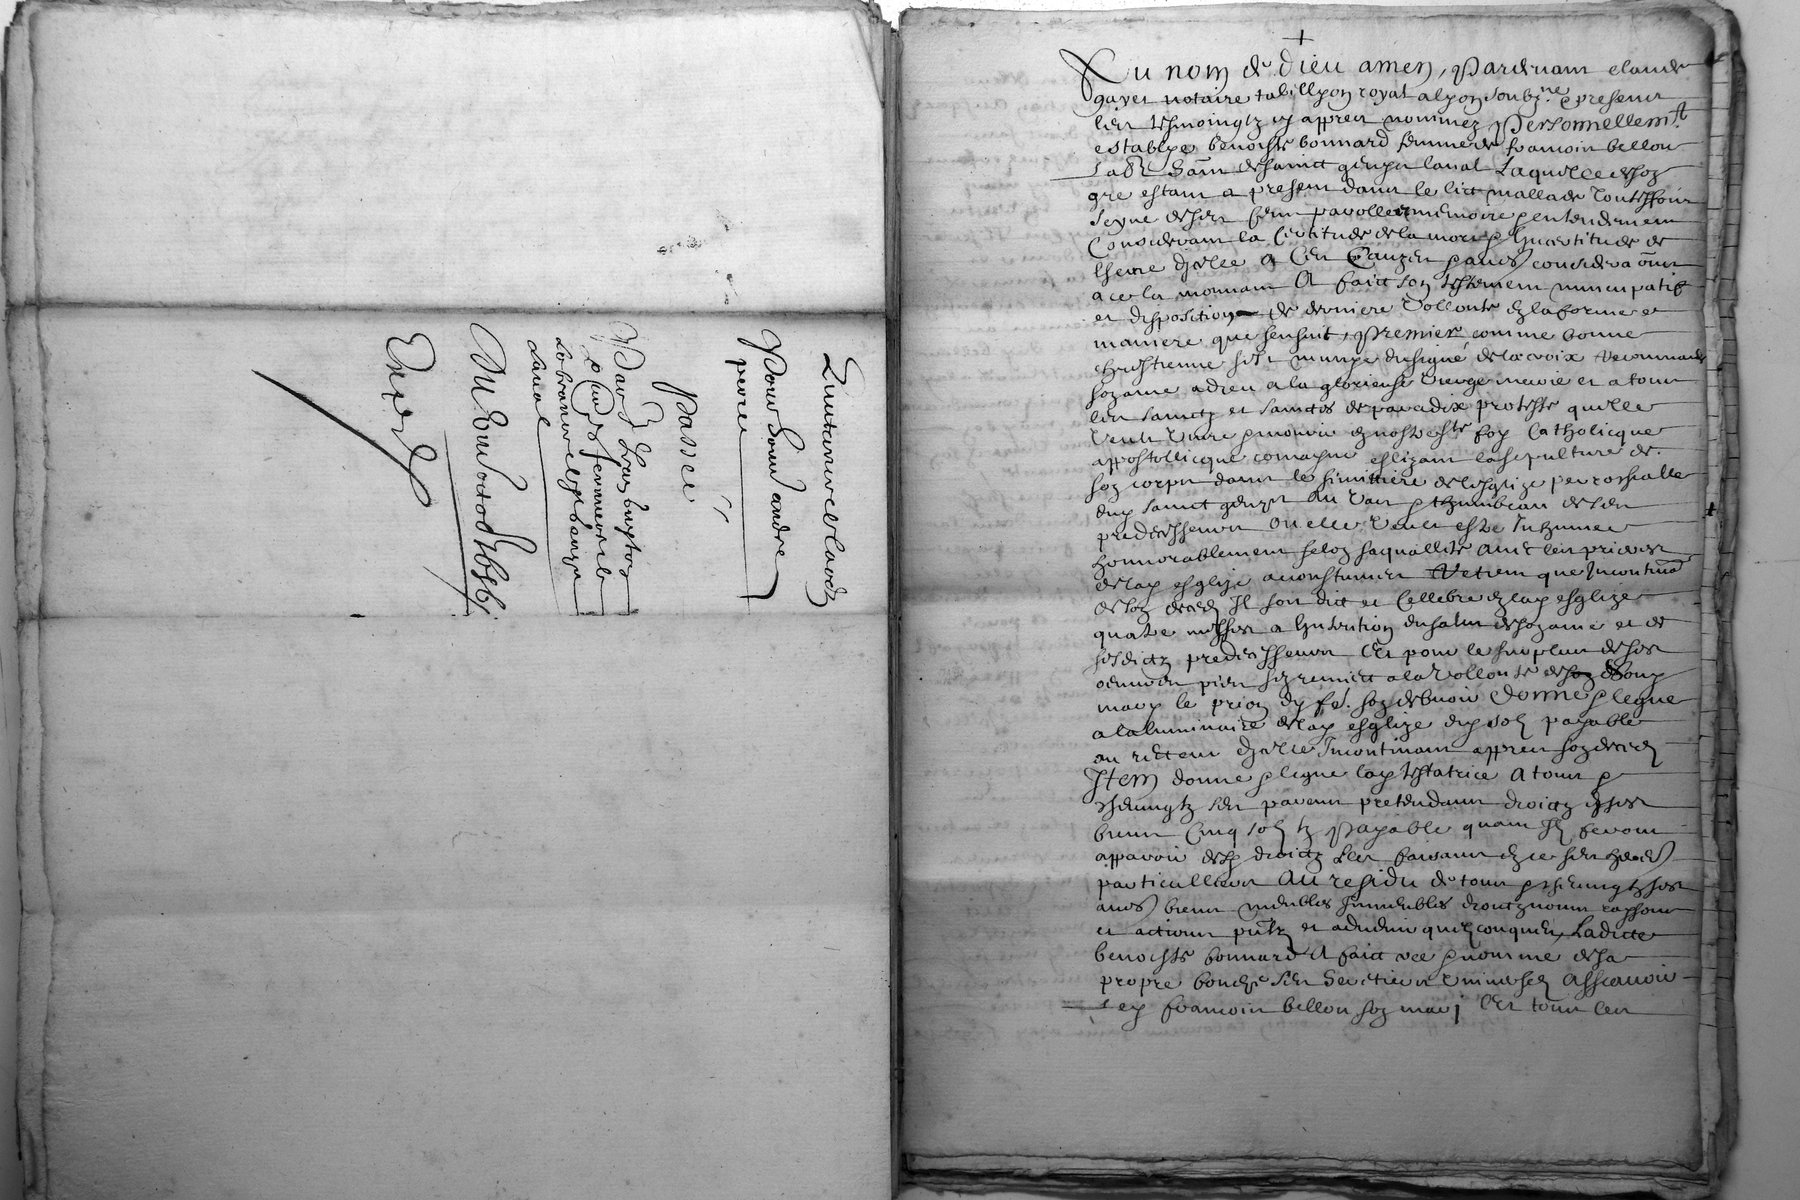 Linventaire et baudz
Pour Sieur andre
perier
Passée
Par Leurs buyton
et fermiers
Laval
Expé
Au nom de Dieu amen, Pardevant claude
gayet notaire tabellyon royal a lyon soubzne & presens
les tesmoingtz cy appres nommez Personnellemt
establye benoiste bonnard femme de francois bellon
labr habn de sainct genys laval Laquelle de son
gre estant a present dans le lict mallade Touteffois
seyne de ses sens parolle memoire & entendement
Considerant la Certitude de la mort & Incertitude de
lheure dicelle A Ces Causes & aues consideraons
a ce la mouvant A faict son testement nuncupatif
et disposition de derniere vollonte en la forme et
maniere que sensuit, Premiert comme bonne
chrestienne sest munye du signe de la croix Recommande
son ame a dieu a la glorieuse Vierge marie et a tous
les sainctz et sainctes de paradix proteste quelle
Veult Vivre & mourir en nostre ste foy Catholicque
appostollicque romayne eslizant la sepulture de
son corps dans le simittiere de lesglize parrochialle
dud sainct genys Au Vas & thumbeau de ses
predecesseurs ou elle veult estre Inhumee
honnorablement selon sa quallite avec les prieres
de lad esglize acoustumees Veu que Incontinant
de son deces Il soit dict et Cellebre en lad esglize
quatre messes a Intention du salut de son ame et de
sesdictz predecesseurs Et pour le surplus de ses
oeuvres pies sen remect a la Vollonte de son
mary le priant dy fe. son debvoir Donne & legue
a la luminaire de lad esglize dix solz payable
au recteur dicelle Incontinant appres son deces
Item donne & legue lad testatrice A tous &
chescungtz ses parens pretendans droictz en ses
biens Cinq solz tz Payable quant Ilz feront
apparoir desd droictz Les faisans en ce ses heres
particulliers Au residu de tous & chescungtz ses
aues biens meubles Immeubles droictz noms raysons
et actions pntz et advenir quelzconques, Ladicte
benoiste bonnard A faict cree & nomme de sa
propre bouche ses heretiers universelz Asscavoir
led francois bellon son mary Et tous les